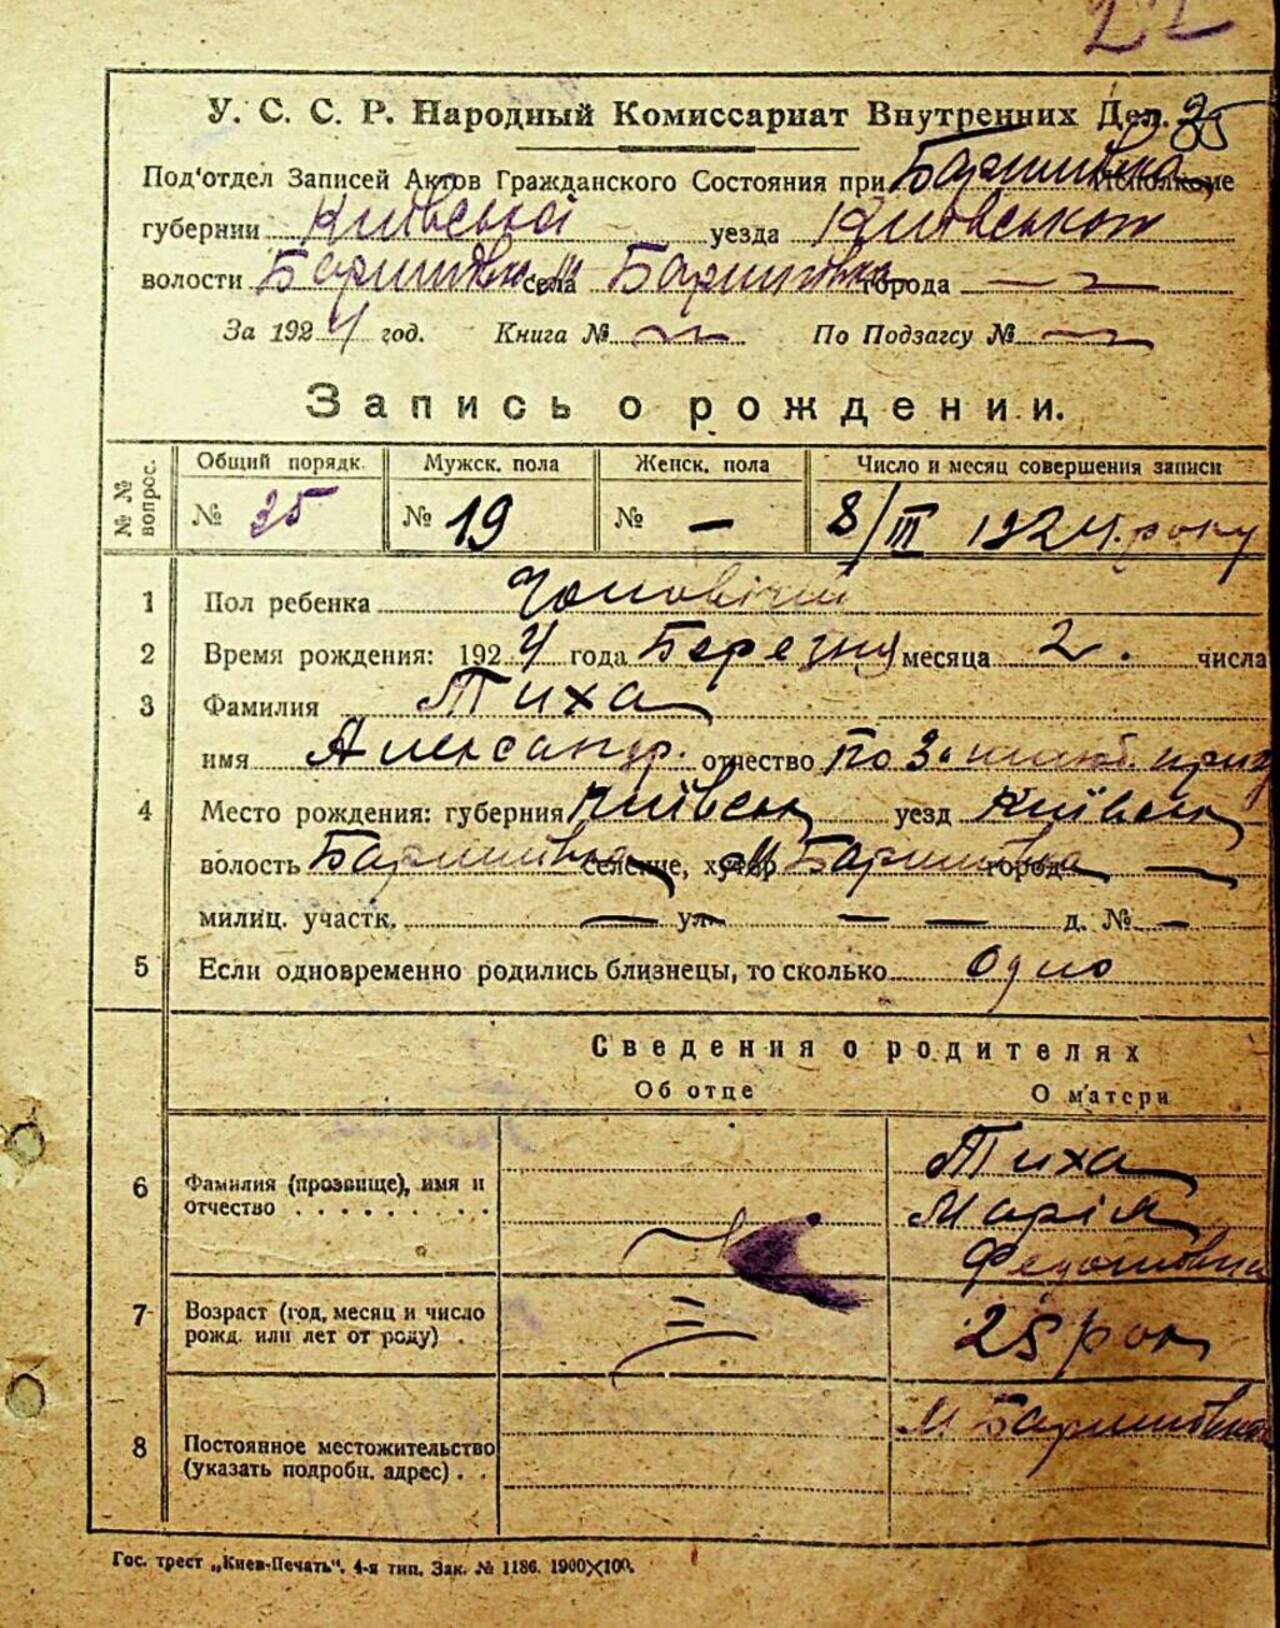 22
У. С. С. Р. Народный Комиссариат Внутренних Дел. 35
Под'отдел Записей Актов Гражданского Состояния при Баришівка Исполкоме
губернии Київської уезда Київського
волости Баришівка села м Баришівка города —
За 1924 год. Книга № — По Подзагсу № —
Запись о рождении.
№ № вопрос. Общий порядк. Мужск. пола Женск. пола Число и месяц совершения записи
№ 35 № 19 № — 8/III 1924 року
1 Пол ребенка Чоловічий
2 Время рождения: 1924 года Березня месяца 2. числа
3 Фамилия Тиха
имя Александр. отчество по
4 Место рождения: губерния Київськ уезд Київськ
волость Баришівка селение, хутор М Баришівка города —
милиц. участк. — ул. — — д. № —
5 Если одновременно родились близнецы, то сколько Одно
Сведения о родителях
Об отце О матери
Тиха
6 Фамилия (прозвище), имя и
отчество . . . . . . . . . Марія
Федотовна
7 Возраст (год, месяц и число
рожд. или лет от роду) . 25 рок
М Баришівка
8 Постоянное местожительство
(указать подробн. адрес) . .
Гос. трест „Киев-Печать“. 4-я тип. Зак. № 1186. 1900×100.